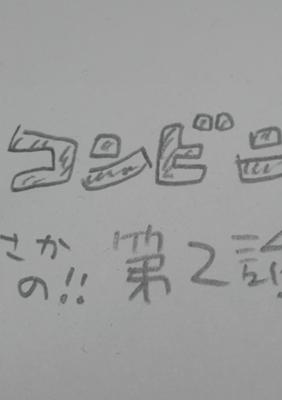 コンビニ
さか
の!!
第2話